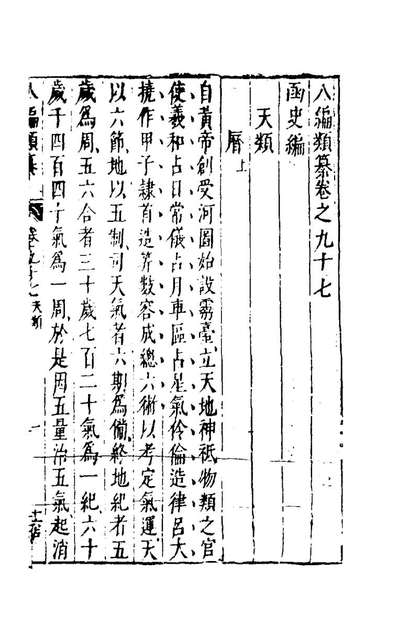 八編類纂卷之九十七
函史編
天類
曆上
自黃帝創受河圖始設靈臺立天地神祗物類之官
使羲和占日常儀占月車區占星氣伶倫造律呂大
撓作甲子隸首造筭數容成總六術以考定氣運天
以六節地以五制司天氣者六期為備終地紀者五
歲為周五六合者三十歲七百二十氣為一紀六十
歲千四百四十氣為一周於是因五量治五氣起消
八編類纂
卷之九十七 天類